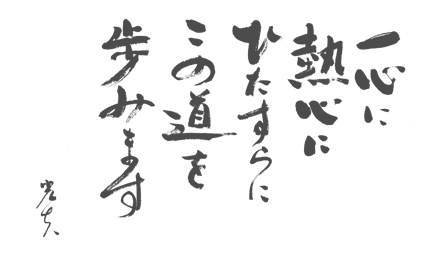 一心に
熱心に
ひたすらに
この道を
歩みます